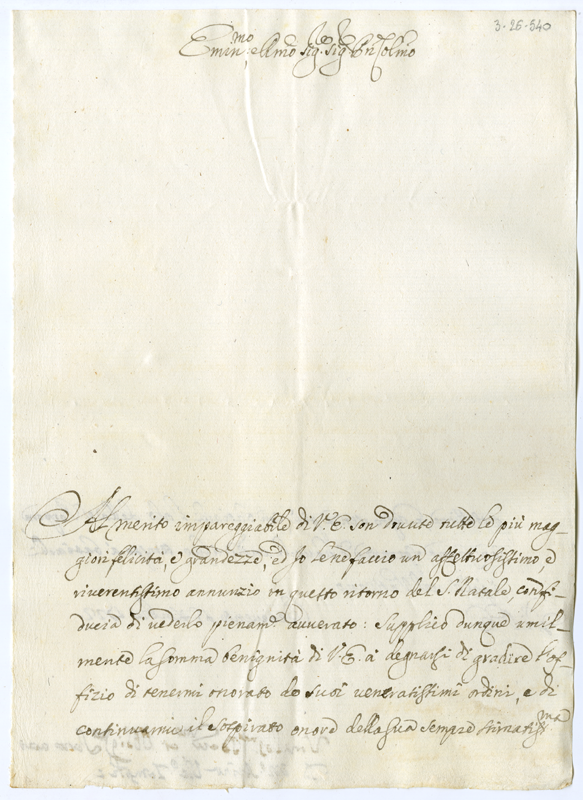 3-26-540
Emin.mo e Rmo Sig. Sig. Pn Colmo
Al merito impareggiabile di V. E. son dovute tutte le più mag-
giori felicità, e grandezze, ed Io le ne faccio un affettuosissimo e
riverentissimo annunzio in questo ritorno del S. Natale, con fi-
ducia di vederlo pienam.e avverato: Supplico dunque umil-
mente la somma benignità di V. E. à degnarsi di gradire l'of-
fizio di tenermi onorato de suoi veneratissimi ordini, e di
continuarmi il sospirato onore della sua sempre stimatiss.ma